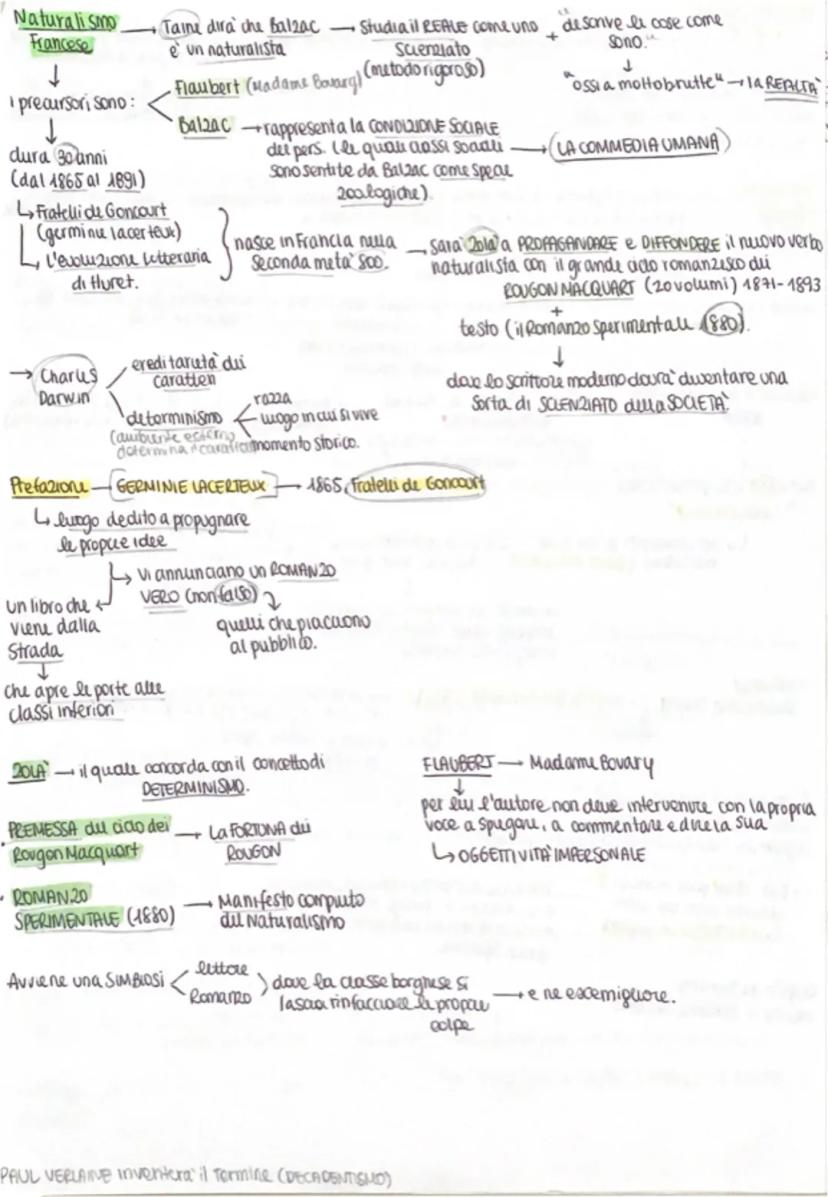 Naturalismo
Francese
Taine dirà che Balzac
è un naturalista
Studia il REALE come uno
Scienziato
(metodo rigoroso)
+
"descrive le cose come
sono."
"ossia molto brutte" la REALTÀ
i precursori sono:
Flaubert (Madame Bovary)
Balzac
rappresenta la CONDIZIONE SOCIALE
dei pers. (le quali classi sociali
sono sentite da Balzac come specie
zoologiche).
(LA COMMEDIA UMANA)
dura 30 anni
(dal 1865 al 1891)
Fratelli de Goncourt
(germinie lacerteux)
L'evoluzione letteraria
di Huret.
nasce in Francia nella
seconda metà 800.
Sarà Zola a PROPAGANDARE e DIFFONDERE il nuovo verbo
naturalista con il grande ciclo romanzesco dei
ROUGON MACQUART (20 volumi) 1871-1893
+
testo (il Romanzo sperimentale 1880).
dove lo scrittore moderno dovrà diventare una
sorta di SCIENZIATO della SOCIETÀ
Charles
Darwin
ereditarietà dei
caratteri
determinismo
(ambiente esterno
determina i caratteri
razza
luogo in cui si vive
momento storico.
Prefazione GERMINIE LACERTEUX 1865, Fratelli de Goncourt
luogo dedito a propugnare
le proprie idee
vi annunciano un ROMANZO
VERO (non falso)
quelli che piacciono
al pubblico.
un libro che
viene dalla
strada
che apre le porte alle
classi inferiori
ZOLÀ il quale concorda con il concetto di
DETERMINISMO.
PREMESSA del ciclo dei
Rougon Macquart
La FORTUNA dei
ROUGON
ROMANZO
SPERIMENTALE (1880)
Manifesto compiuto
del Naturalismo
FLAUBERT Madame Bovary
per lui l'autore non deve intervenire con la propria
voce a spiegare, a commentare e dire la sua
OGGETTIVITÀ IMPERSONALE
Avviene una SIMBIOSI
lettore
Romanzo
dove la classe borghese si
lascia rinfacciare le proprie
colpe
e ne esce migliore.
PAUL VERLAINE inventerà il termine (DECADENTISMO)